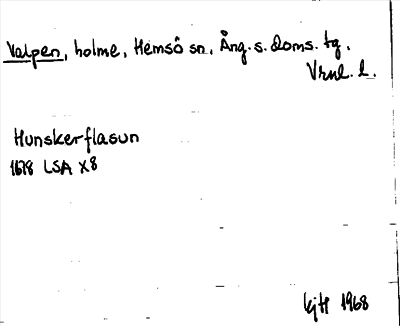 Valpen, holme, Hemsö sn, Ång. s. doms. tg.
Vrnl. l.
Hunskerflasun
1678 LSA X8
1968